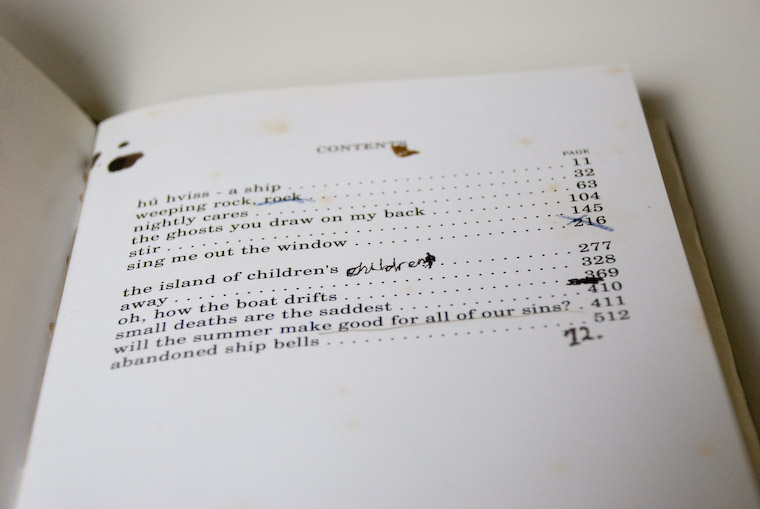 CONTENTS
PAGE
hú hviss - a ship . . . . . . . . . . . . . . . . . . . . 11
weeping rock, rock . . . . . . . . . . . . . . . . . . . . 32
nightly cares . . . . . . . . . . . . . . . . . . . . 63
the ghosts you draw on my back . . . . . . . . . . . . 104
stir . . . . . . . . . . . . . . . . . . . . 145
sing me out the window . . . . . . . . . . . . . . . . 216
the island of children's children . . . . . . . . . . 277
away . . . . . . . . . . . . . . . . . . . . 328
oh, how the boat drifts . . . . . . . . . . . . . . . . 369
small deaths are the saddest . . . . . . . . . . . . 410
will the summer make good for all of our sins? . . 411
abandoned ship bells . . . . . . . . . . . . . . . . 512
72.